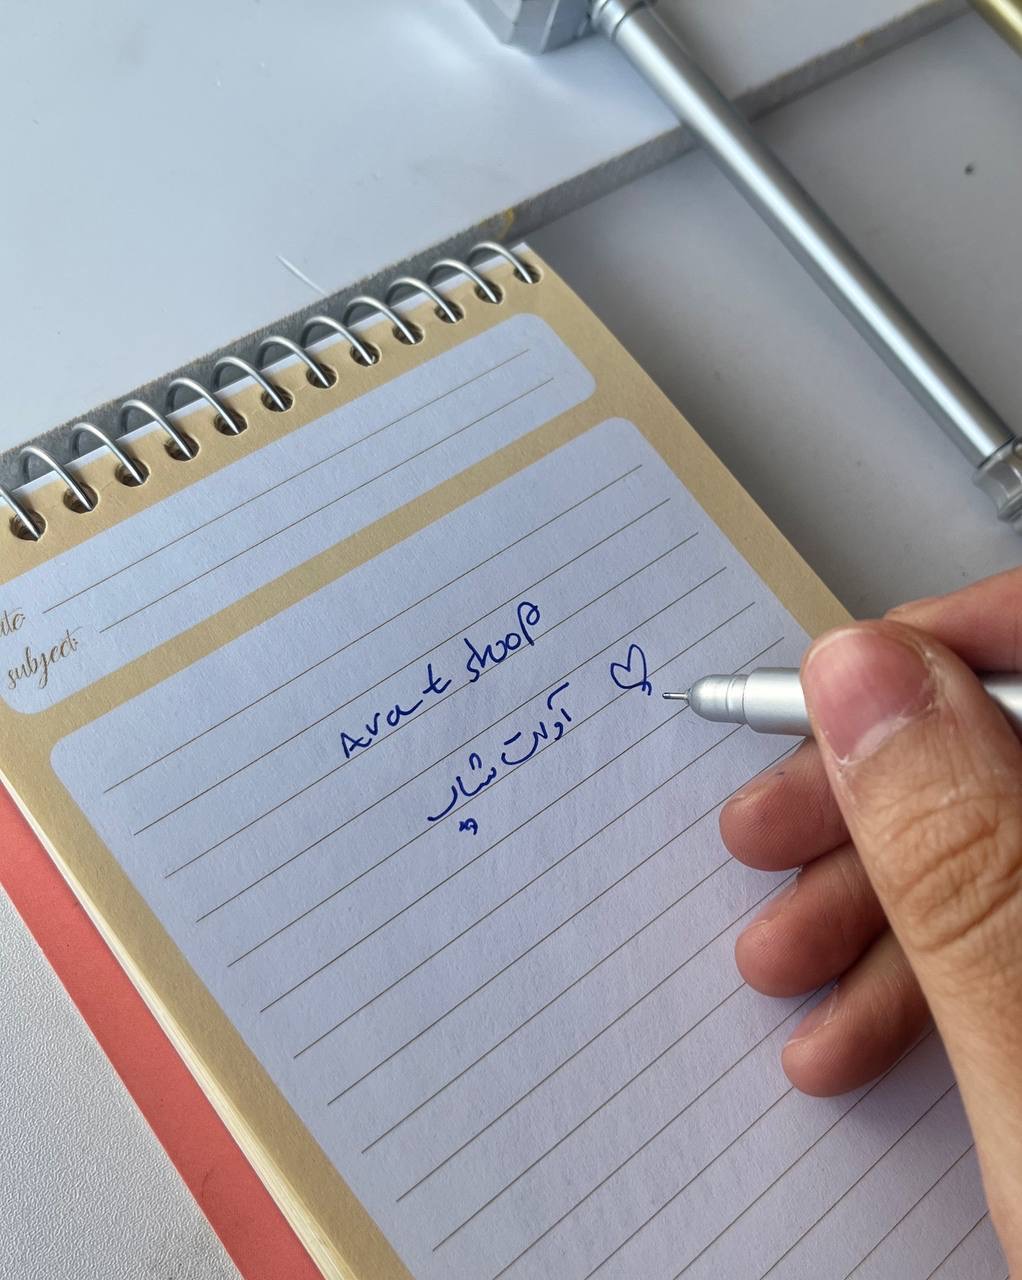 subject:
Avat shoop
آوات شاپ